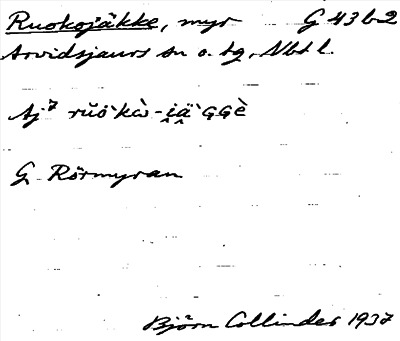 Ruokojäkke, myr G 43 b 2
Arvidsjaurs sn o. tg, Nbt l.
Aj⁷ rŭö`kὼ-i̯ä̭`ɢɢè
G Rörmyran
Björn Collinder 1937